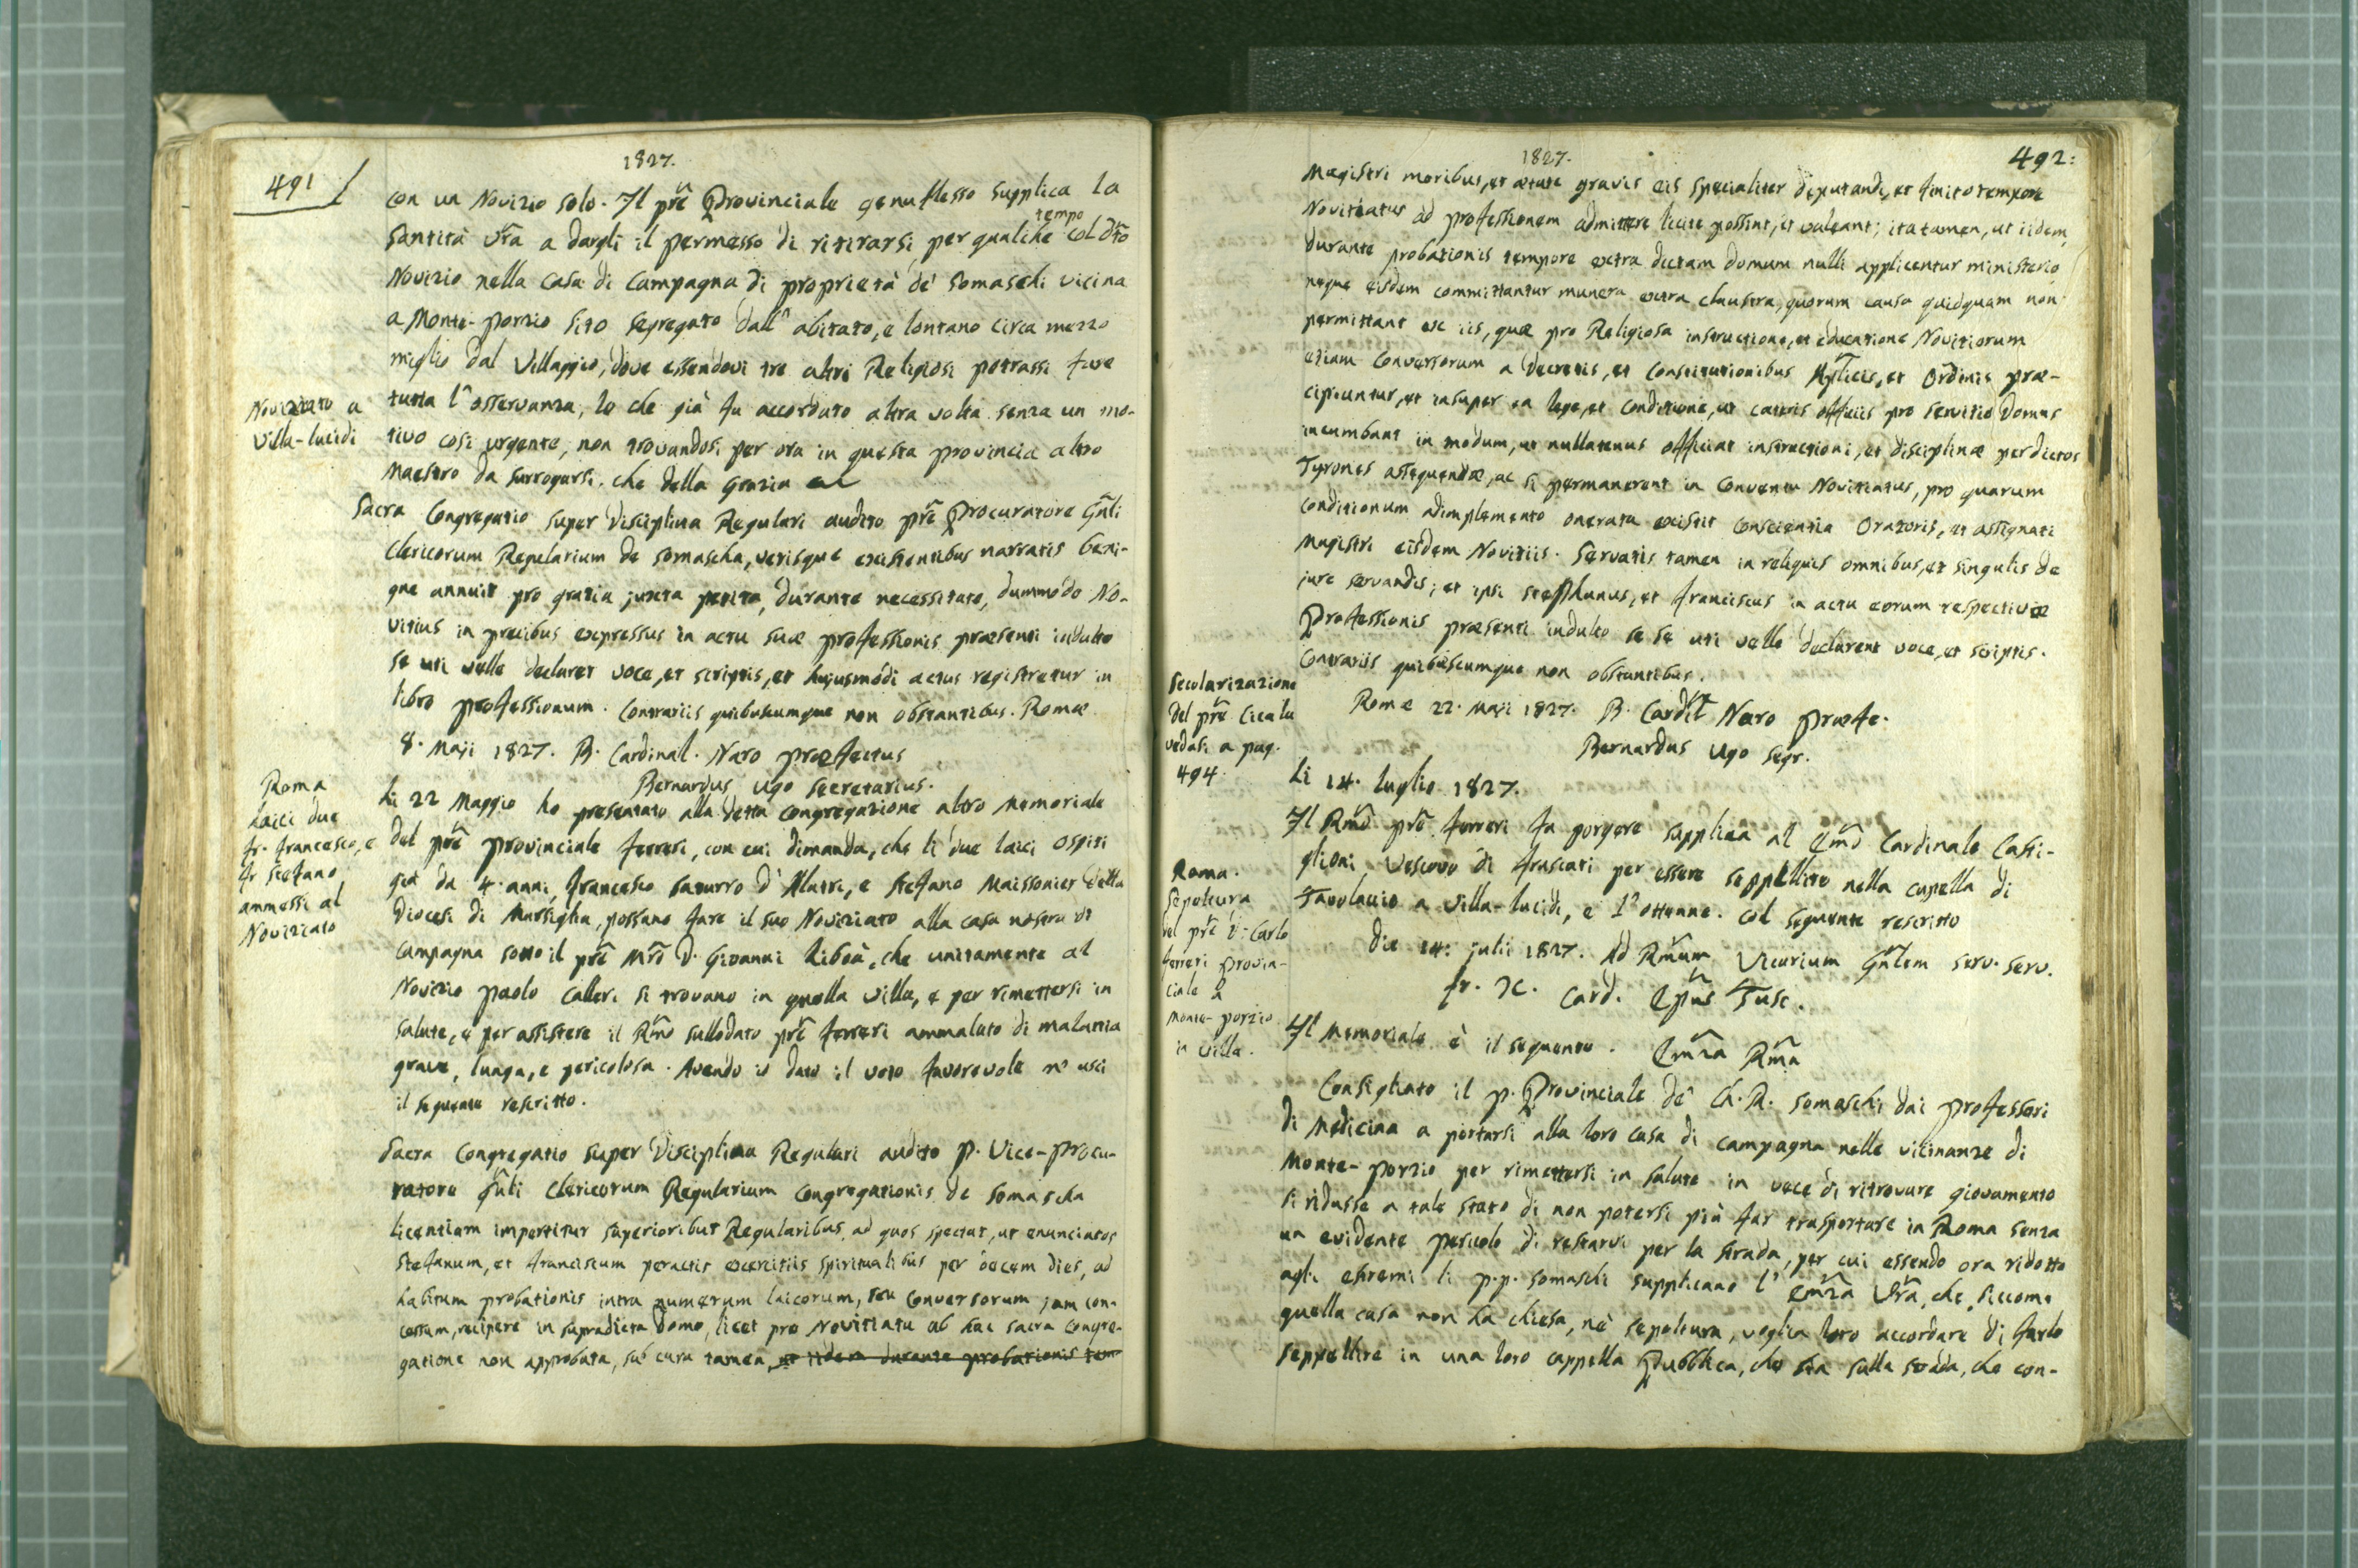 491
1827.
con un Novizio solo. Il pre Provinciale genuflesso supplica la
Santità Vra a dargli il permesso di ritirarsi per qualche tempo col dto
Novizio nella casa di campagna di proprietà de' Somaschi vicina
a Monte-porzio sito segregato dall' abitato, e lontano circa mezzo
miglio dal Villaggio, dove essendovi tre altri Religiosi potrassi fare
tutta l'osservanza, lo che già fu accordato altra volta senza un mo-
tivo così urgente, non trovandosi per ora in questa provincia altro
Maestro da surrogarsi. che della Grazia
Noviziato a
Villa-lucidi
Sacra Congregatio super Disciplina Regulari audito pre Procuratore Gnli
Clericorum Regularium de Somascha, verisque existentibus narratis beni-
gne annuit pro gratia juxta petita, durante necessitate, dummodo No-
vitius in precibus expressus in actu suæ professionis præsenti indulto
se uti velle declaret voce, et scriptis, et hujusmodi actus registretur in
libro professionum. Contrariis quibuscumque non obstantibus. Romæ
8. Maji 1827. B. Cardinal. Naro præfectus
Bernardus Ugo Secretarius.
Roma
Laici due
fr. francesco, e
fr stefano
ammessi al
Noviziato
Li 22 Maggio ho presentato alla detta congregazione altro Memoriale
del pre provinciale ferreri, con cui dimanda, che li due laici ospiti
già da 4 anni, francesco saturro d'Alatri, e stefano Maissonier della
Diocesi di Marsiglia, possano fare il suo Noviziato alla casa nostra di
campagna sotto il pre Mro D. Giovanni Liboà, che unitamente al
Novizio paolo Calleri si trovano in quella villa, e per rimettersi in
salute, e per assistere il Rmo sullodato pre ferreri ammalato di malattia
grave, lunga, e pericolosa. Avendo io dato il voto favorevole n'usci
il seguente rescritto.
Sacra Congregatio super Disciplina Regulari audito p. Vice-procu-
ratore Gnli Clericorum Regularium Congregationis de Somascha
licentiam impertitur superioribus Regularibus, ad quos spectat, ut enunciatos
stefanum, et franciscum peractis exercitiis spiritualibus per decem dies, ad
habitum probationis intra numerum laicorum, seu Conversorum jam con-
cessum, recipere in supradicta domo, licet pro Novitiatu ab hac sacra Congre-
gatione non approbata, sub cura tamen, ut iidem durante probationis tem
1827.
492:
Magistri moribus, et ætate gravis eis specialiter deputandi, et finito tempore
Novitiatus ad professionem admittere licite possint, et valeant; ita tamen, ut iidem
durante probationis tempore extra dictam domum nulli applicentur ministerio,
neque eisdem committantur munera extra claustra, quorum causa quidquam non
permittant ex iis, quæ pro Religiosa instructione, et educatione Novitiorum
etiam Conversorum a decretis, et Constitutionibus Aplicis, et Ordinis præ-
cipiuntur, et insuper ea lege, et conditione, ut cæteris officiis pro servitio Domus
incumbant in modum, ut nullatenus officiat instructioni, et disciplinæ per dictos
Tyrones assequendæ, ac si permanerent in Conventu Novitiatus, pro quarum
conditionum adimplemento onerata existit conscientia Oratoris, et assignati
Magistri eisdem Novitiis. Servatis tamen in reliquis omnibus, et singulis de
jure servandis; et ipsi stephanus, et franciscus in actu eorum respectivæ
Professionis præsenti indulto se se uti velle declarent voce, et scriptis.
Contrariis quibuscumque non obstantibus.
Romæ 22. Maji 1827. B. Cardil Naro præfe.
Bernardus Ugo segr.
Secolarizazione
del pre Cicala
vedasi a pag.
494.
Li 14. luglio 1827.
Il Rmo pre ferreri fa porgere supplica al Emo Cardinale Casti-
glioni Vescovo di frascati per essere seppellito nella capella di
Tavolaccio a villa-lucidi, e l'ottenne. col seguente rescritto
die 14: julii 1827. Ad Rmum Vicarium Gnlem serv. serv.
fr. X. Card. Epus Tusc.
Roma.
Sepoltura
del pre D. Carlo
ferreri provin-
ciale a
Monte-porzio
in villa.
Il Memoriale è il seguente. Emza Rma
Consigliato il p. Provinciale de' Ch. R. Somaschi dai professori
di Medicina a portarsi alla loro casa di campagna nelle vicinanze di
Monte-porzio per rimettersi in salute in vece di ritrovare giovamento
si ridusse a tale stato di non potersi più far trasportare in Roma senza
un evidente pericolo di restarvi per la strada, per cui essendo ora ridotto
agli estremi li p.p. Somaschi supplicano l'Emza Vra, che, siccome
quella casa non ha chiesa, nè sepoltura, voglia loro accordare di farlo
seppellire in una loro cappella Pubblica, che sta sulla strada, che con-